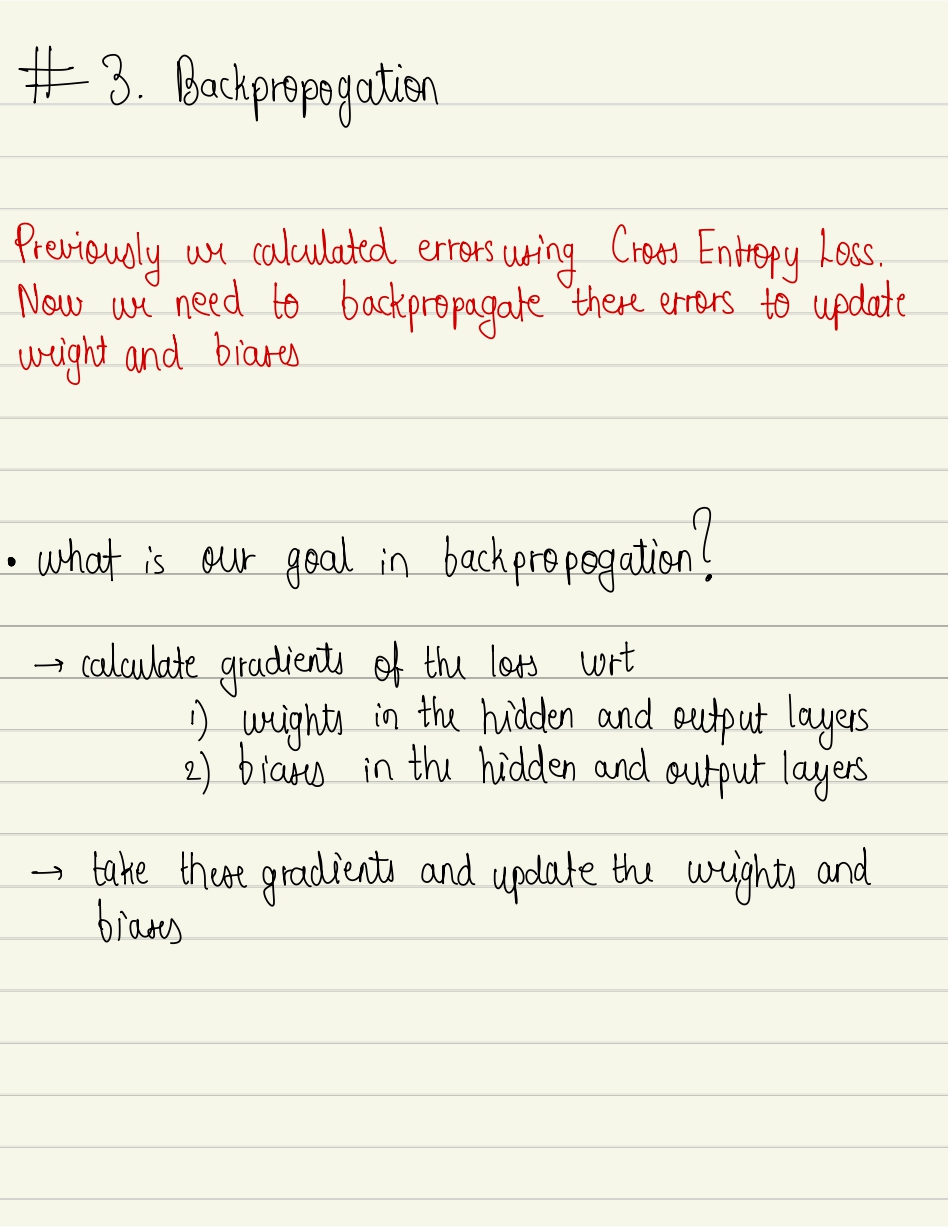 # 3. Backpropogation
Previously we calculated errors using Cross Entropy Loss.
Now we need to backpropagate these errors to update
weight and biases
• what is our goal in backpropogation?
→ calculate gradients of the loss wrt
1) weights in the hidden and output layers
2) biases in the hidden and output layers
→ take these gradients and update the weights and
biases